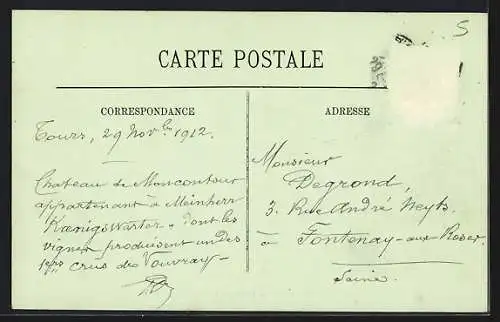 CARTE POSTALE
CORRESPONDANCE
Tours, 29 Nov.bre 1912.
Chateau de Moncontour
appartenant à Meinherr
Kœnigswarter - dont les
vignes produisent un des
1ers crûs de Vouvray -
ADRESSE
Monsieur
Degrond,
3. Rue André Neyts.
à Fontenay-aux-Roses.
Seine.
5